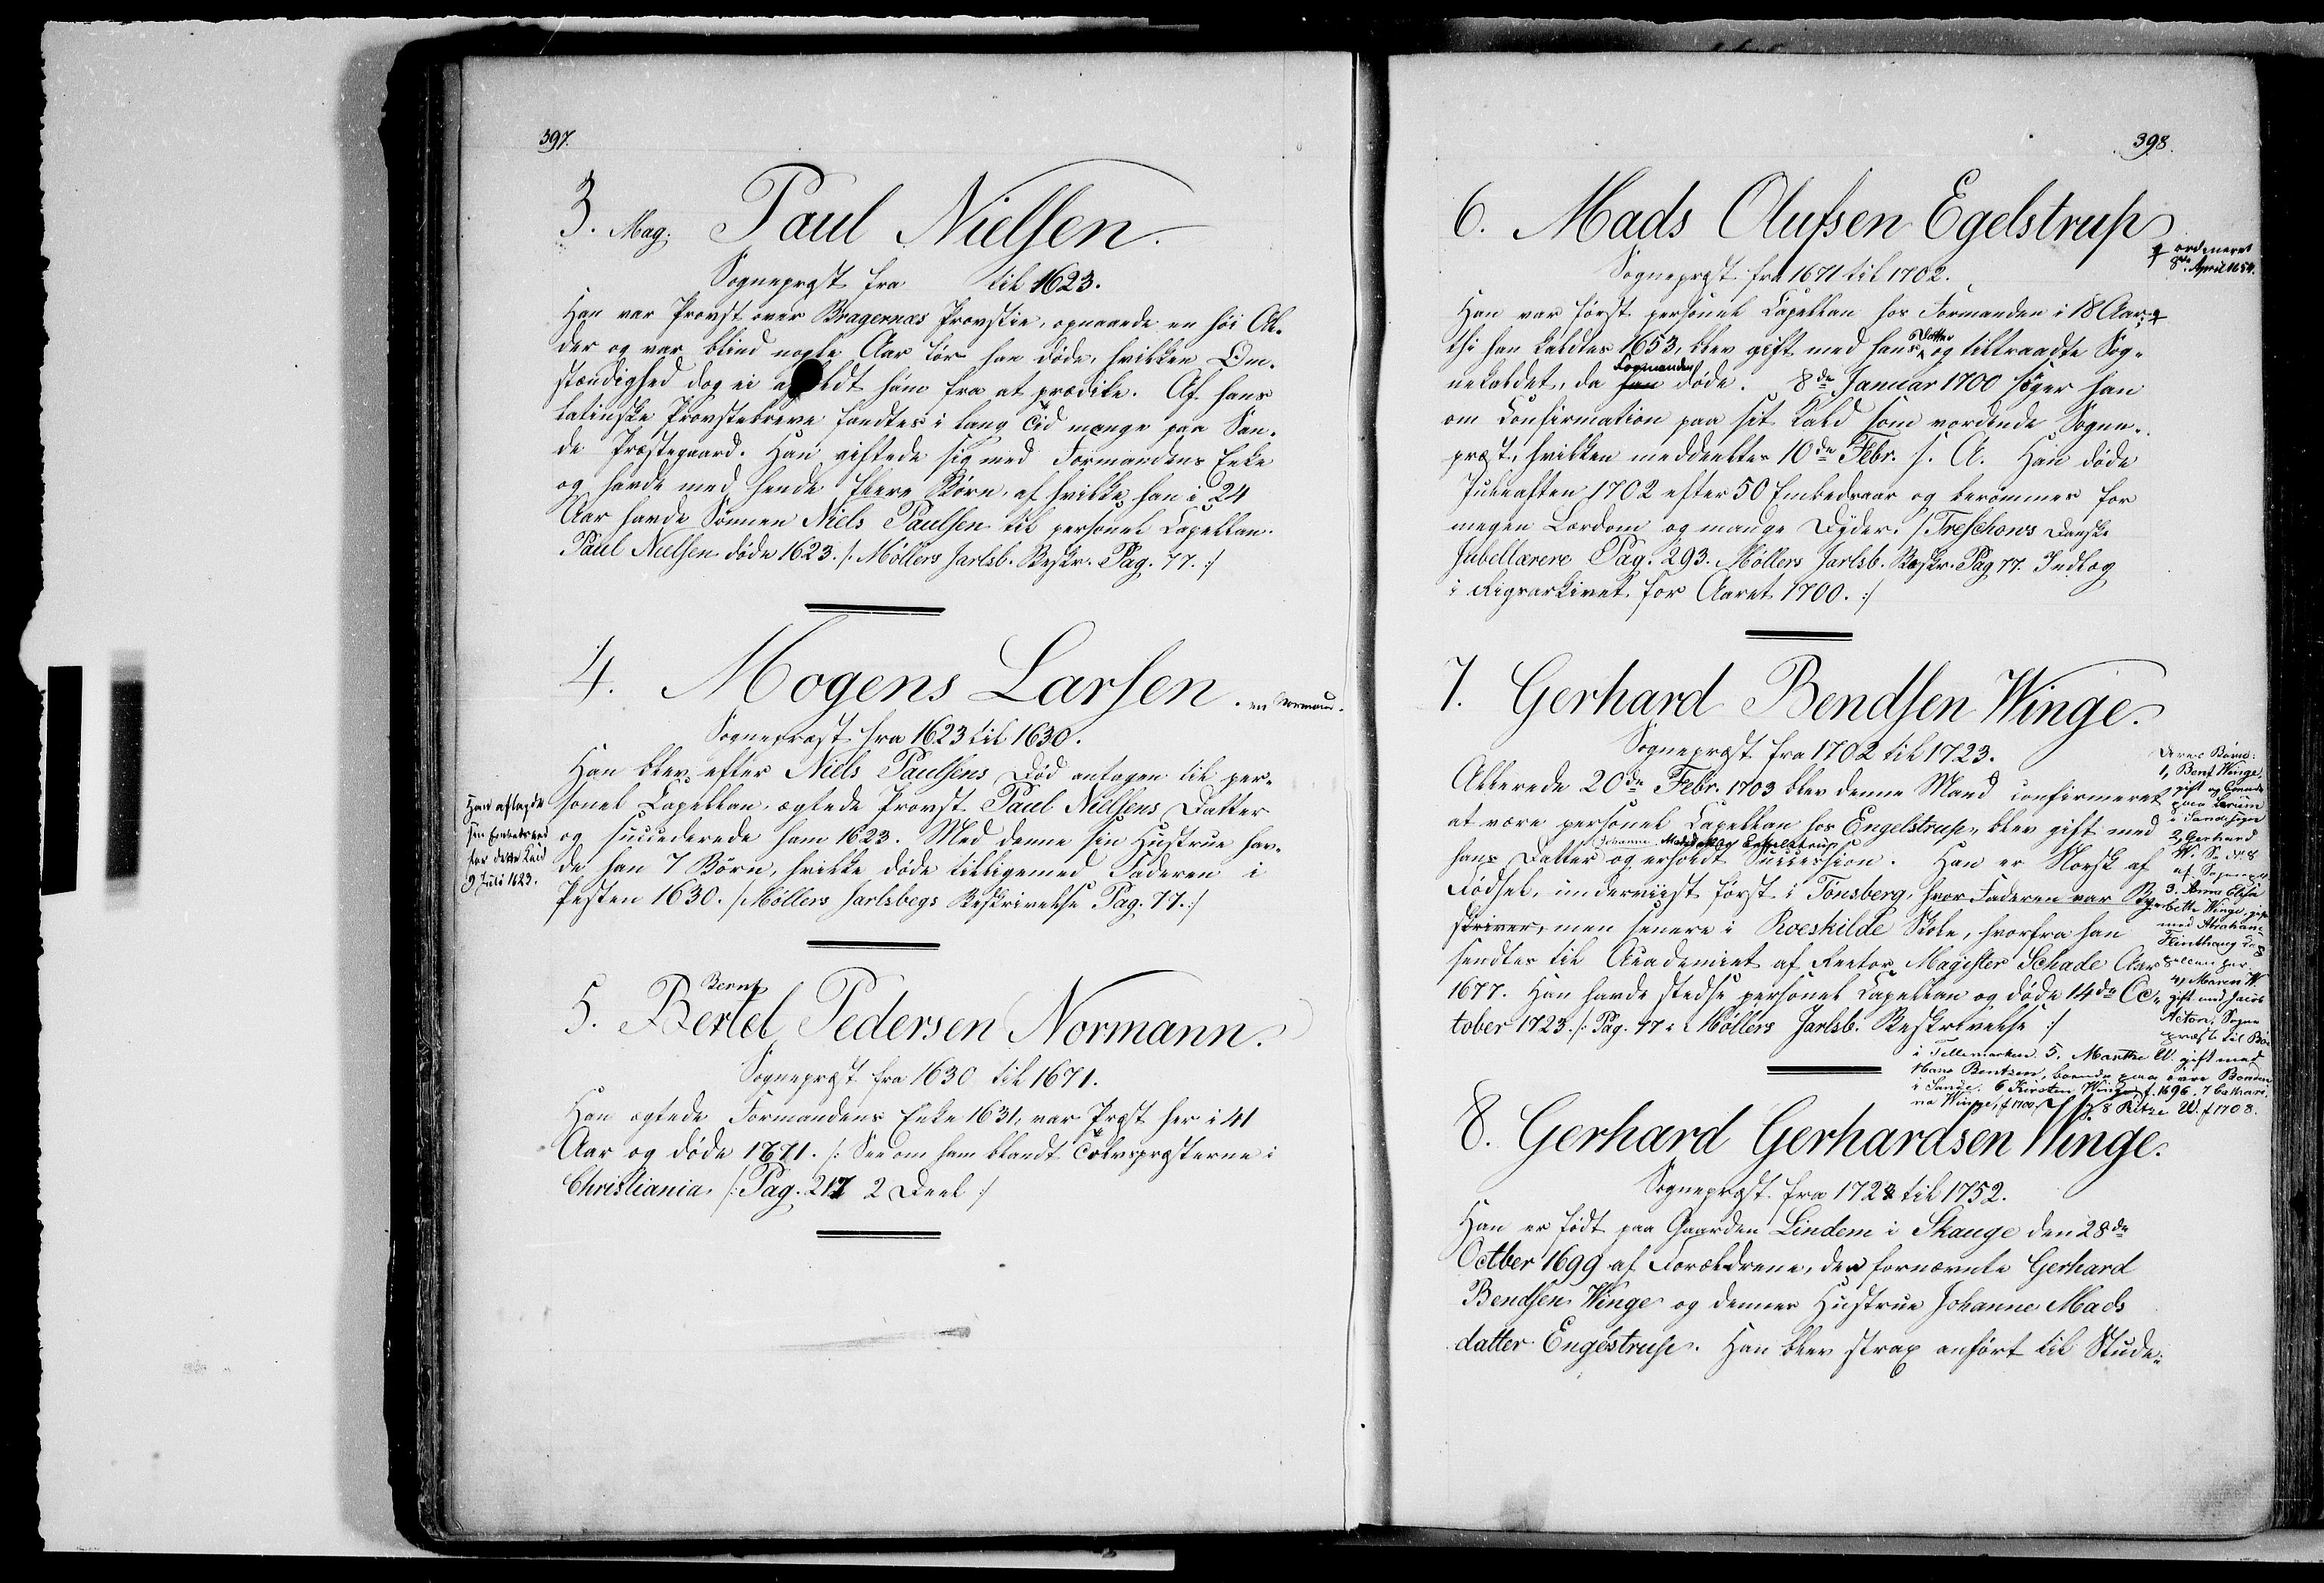 397.
3. Mag. Paul Nielsen.
Sognepræst fra til 1623.
Han var Provst over Bragernæs Provstie, opnaaede en høi Al-
der og var blind nogle Aar før han døde, hvilken Om-
stændighed dog ei afholdt ham fra at prædike. Af hans
latinske Provstebreve fandtes i lang Tid mange paa San-
de Præstegaard. Han giftede sig med Formandens Enke
og havde med hende flere Børn, af hvilke han i 24
Aar havde Sønnen Niels Paulsen til personel Capellan.
Paul Nielsen døde 1623. /: Møllers Jarlsb. Beskr. Pag. 77. :/
4. Mogens Larsen. en Normand.
Sognepræst fra 1623 til 1630.
Han blev efter Niels Paulsens Død antagen til per-
sonel Capellan, ægtede Provst Paul Nielsens Datter
og succederede ham 1623. Med denne sin Hustrue hav-
de han 7 Børn, hvilke døde tilligemed Faderen i
Pesten 1630. /: Møllers Jarlsbegs Beskrivelse Pag. 77. :/
Han aflagde
sin Embedseed
for dette Kald
9 Juli 1623.
Bernt
5. Bertel Pedersen Normann.
Sognepræst fra 1630 til 1671.
Han ægtede Formandens Enke 1631, var Præst her i 41
Aar og døde 1671. /: See om ham blandt Tolvpræsterne i
Christiania. /: Pag. 217 2 Deel :/
398.
6. Mads Olufsen Egelstrup
Sognepræst fra 1671 til 1702.
ordineret
8de April 1654.
Han var først personel Capellan hos Formanden i 18 Aar,
thi han kaldtes 1653, blev gift med hans Datter og tiltraadte Sog-
nekaldet, da han Formanden døde. 8de Januar 1700 søger han
om Confirmation paa sit Kald som vordende Sogne-
præst, hvilken meddeeltes 10de Febr. s. A. Han døde
Juleaften 1702 efter 50 Embedsaar og berømmes for
megen Lærdom og mange Dyder. /: Treschows Danske
Jubellærere Pag. 293. Møllers Jarlsb. Beskr. Pag 77. Indlæg
i Rigsarkivet for Aaret 1700. :/
7. Gerhard Bendsen Winge.
Sognepræst fra 1702 til 1723.
Allerede 20de Febr. 1703 blev denne Mand confirmeret
at være personel Capellan hos Engelstrup, blev gift med
hans Datter Johanne Madsdatter Engelstrup og erholdt Succession. Han er Norsk af
Fødsel, underviist først i Tønsberg, hvor Faderen var By-
skriver, men senere i Roeskilde Skole, hvorfra han
sendtes til Academiet af Rector Magister Schade Aar
1677. Han havde stedse personel Capellan og døde 14de Oc-
tober 1723. /: Pag. 77 i Møllers Jarlsb. Beskrivelse :/
Deres Børn:
1, Bent Winge,
gift og boende
paa
i Sande Sogn
2, Gerhard
W. S. N. 8
3. Anna Elisa-
beth Winge, gift
med Abraham
Flinthaug
4, Maren W.
gift med Jacob
Acton, Sogne
præst til Bø
i Tellemarken. 5. Marthe W. gift med
Hans Bentzen, boende paa øvre Bonden
i Sande. 6 Kirsten Winge, f. 1696. 7 Cathari-
na Winge, f 1700. 8 W. f 1708.
8. Gerhard Gerhardsen Winge.
Sognepræst fra 1723 til 1752.
Han er født paa Gaarden Lindem i Skauge den 28de
Octber 1699 af Forældrene, den fornævnte Gerhard
Bendsen Winge og dennes Hustrue Johanne Mads
datter Engestrup. Han blev strax anført til Stude-